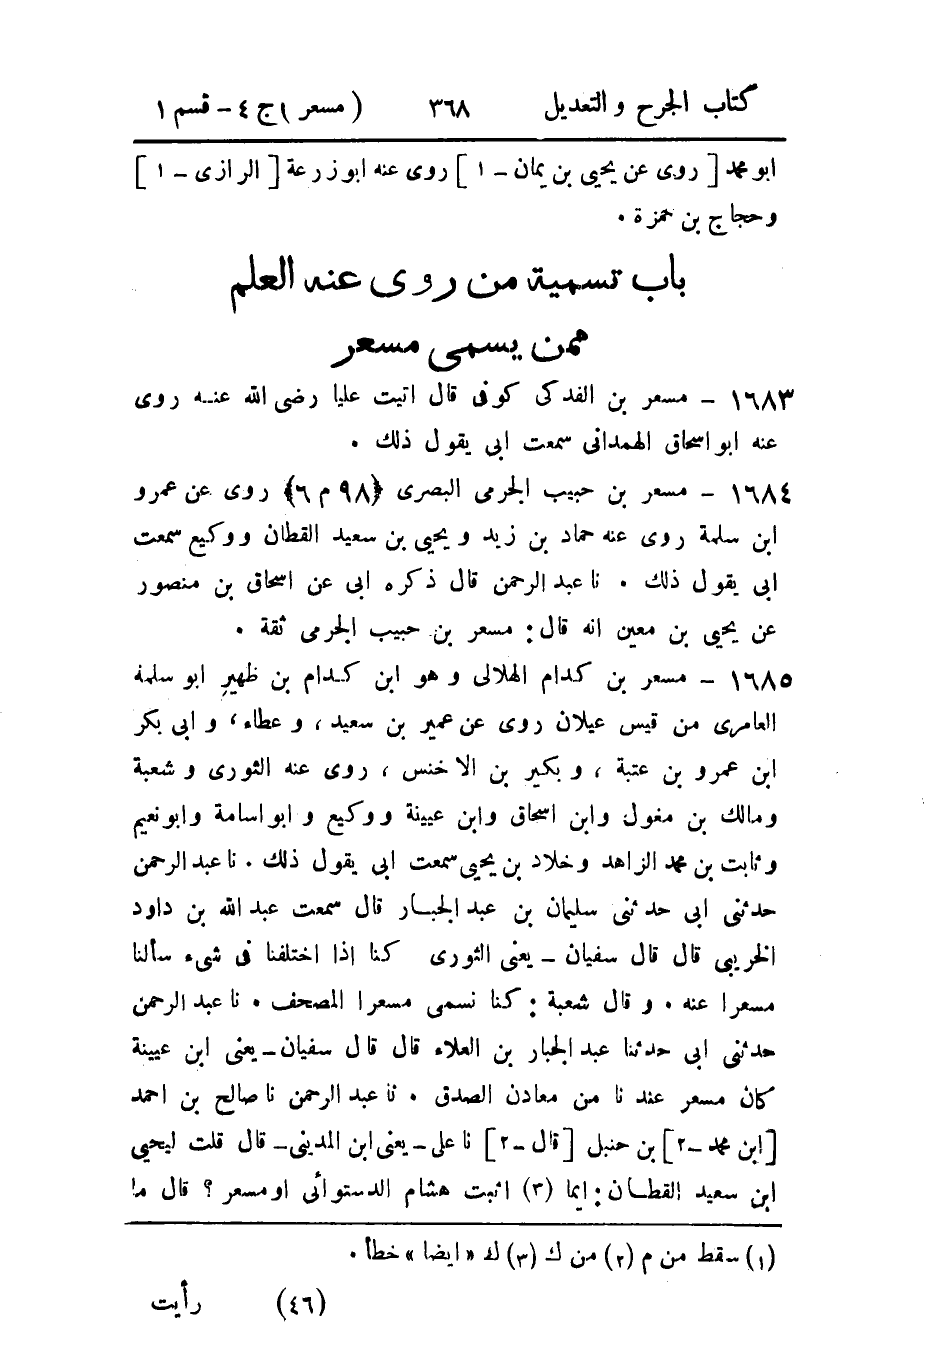 كتاب الجرح والتعديل ٣٦٨ (مسعر) ج ٤ - قسم ١
ابو محمد [ روى عن يحيى بن يمان - ١ ] روى عنه ابو زرعة [ الرازى - ١ ]
وحجاج بن حمزة ٠
باب تسمية من روى عنه العلم
ممن يسمى مسعر
١٦٨٣ - مسعر بن الفدكى كوفى قال اتيت عليا رضى الله عنه روى
عنه ابو اسحاق الهمدانى سمعت ابى يقول ذلك ٠
١٦٨٤ - مسعر بن حبيب الجرمى البصرى ﴿٩٨ م ٦﴾ روى عن عمرو
ابن سلمة روى عنه حماد بن زيد ويحيى بن سعيد القطان ووكيع سمعت
ابى يقول ذلك ٠ نا عبد الرحمن قال ذكره ابى عن اسحاق بن منصور
عن يحيى بن معين انه قال : مسعر بن حبيب الجرمى ثقة ٠
١٦٨٥ - مسعر بن كدام الهلالى وهو ابن كدام بن ظهير ابو سلمة
العامرى من قيس عيلان روى عن عمير بن سعيد ، وعطاء ، وابى بكر
ابن عمرو بن عتبة ، وبكير بن الاخنس ، روى عنه الثورى وشعبة
ومالك بن مغول وابن اسحاق وابن عيينة ووكيع وابو اسامة وابو نعيم
وثابت بن محمد الزاهد وخلاد بن يحيى سمعت ابى يقول ذلك ٠ نا عبد الرحمن
حدثنى ابى حدثنى سليمان بن عبد الجبار قال سمعت عبد الله بن داود
الخريبى قال قال سفيان - يعنى الثورى كنا اذا اختلفنا فى شىء سألنا
مسعرا عنه ٠ وقال شعبة : كنا نسمى مسعرا المصحف ٠ نا عبد الرحمن
حدثنى ابى حدثنا عبد الجبار بن العلاء قال قال سفيان - يعنى ابن عيينة
كان مسعر عند نا من معادن الصدق ٠ نا عبد الرحمن نا صالح بن احمد
[ ابن محمد - ٢ ] بن حنبل [ قال - ٢ ] نا على - يعنى ابن المدينى - قال قلت ليحيى
ابن سعيد القطان : ايما (٣) اثبت هشام الدستوائى او مسعر ؟ قال ما
(١) سقط من م (٢) من ك (٣) ك « ايضا » خطأ ٠
(٤٦) رأيت